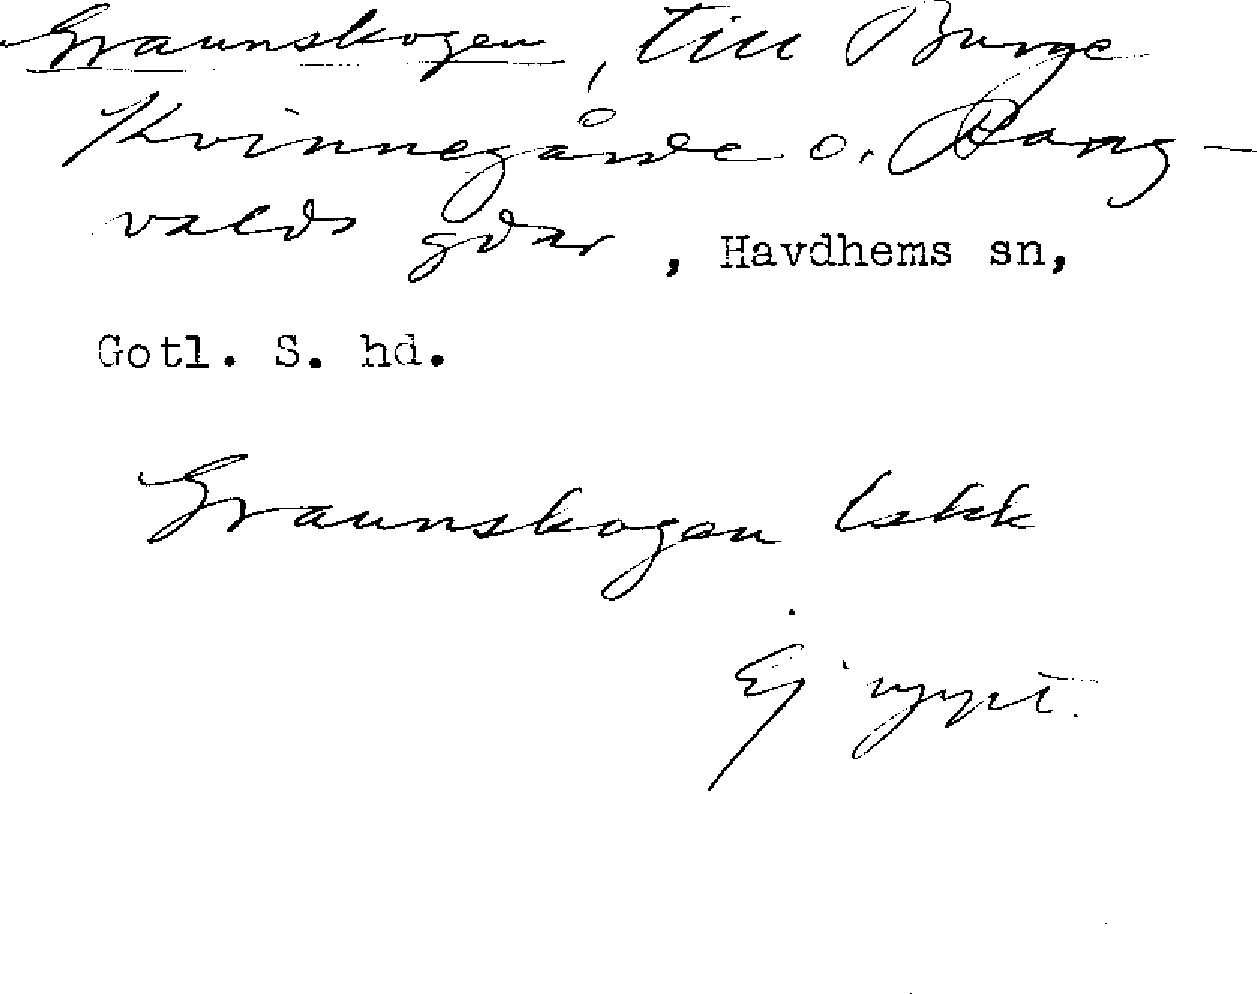 Graunskogen, till Burge
Kvinnegårde o. Rang-
valds gdar, Havdhems sn,
Gotl. S. hd.
Graunskogen lskk
Ej uppt.